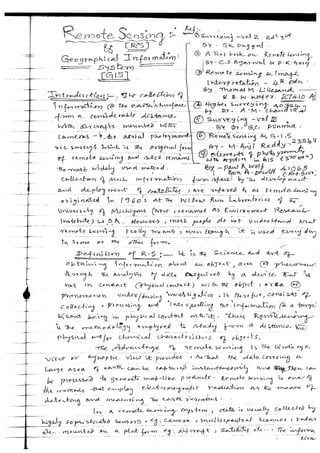 Remote Sensing :-
& [RS]
Geographical Information
System
[GIS]
Ref:
① Surveying - vol 2 Edn 3rd
By - S.K. Duggal.
② A Text book on Remote Sensing
By - C.S Agarwal & P.K Garg.
③ Remote sensing & Image
Interpretation - 4th edn :
By Thomas M. Lillesand
& R.W. Kiefer 27410
④ Higher Surveying
By - A.M. Chandra
⑤ Surveying - vol III
By Dr. B.C. Punmia.
⑥ Remote Sensing & G.I.S
By - M. Anji Reddy
⑦ Elements of photogrammetry
with in GIS
By - Paul R. Wolf
Bon A. Dewitt
Introduction :- The collecting of
Information @ the earth surface
from a considerable distance.
With aircrafts mounted with
cameras for aerial photography
air surveys which is the original form
of remote sensing and also remains
the most widely used method.
Collection of such information from space by the development
and deployment of satellites, are refered to as remote sensing
originated in 1960's at the Willow Run Laboratories of the
University of Michigan (Now renamed as Environment Research
Institute) USA. However, most people do not understand what
remote sensing really means, even though it is used every day
in some or the other form.
Definition of R-S :- It is the Science and Art of
obtaining Information about an object, area @ phenomenon
through the analysis of data acquired by a device that is
not in contact (physical contact) with the object, area @
Phenomenon under investigation. It therefore, consists of
collecting, processing and interpretting the information @ a target
without being in physical contact with it. Thus Remote sensing
is the methodology employed to study from a distance the
physical and/or chemical characteristics of objects.
The Advantage of remote sensing is the bird's eye
view or synoptic view it provides. So that the data covering a
large area of earth can be captured instantaneously and then can
be processed to generate map-like products. Remote sensing is one of
the methods that employ electromagnetic radiation as the means of
detecting and measuring the earth resources.
In a remote sensing system, data is usually collected by
highly sophisticated sensors - eg; camera, multispectral scanner, radar
etc. mounted on a platform eg; aircraft, Satellite etc. The informa
tion